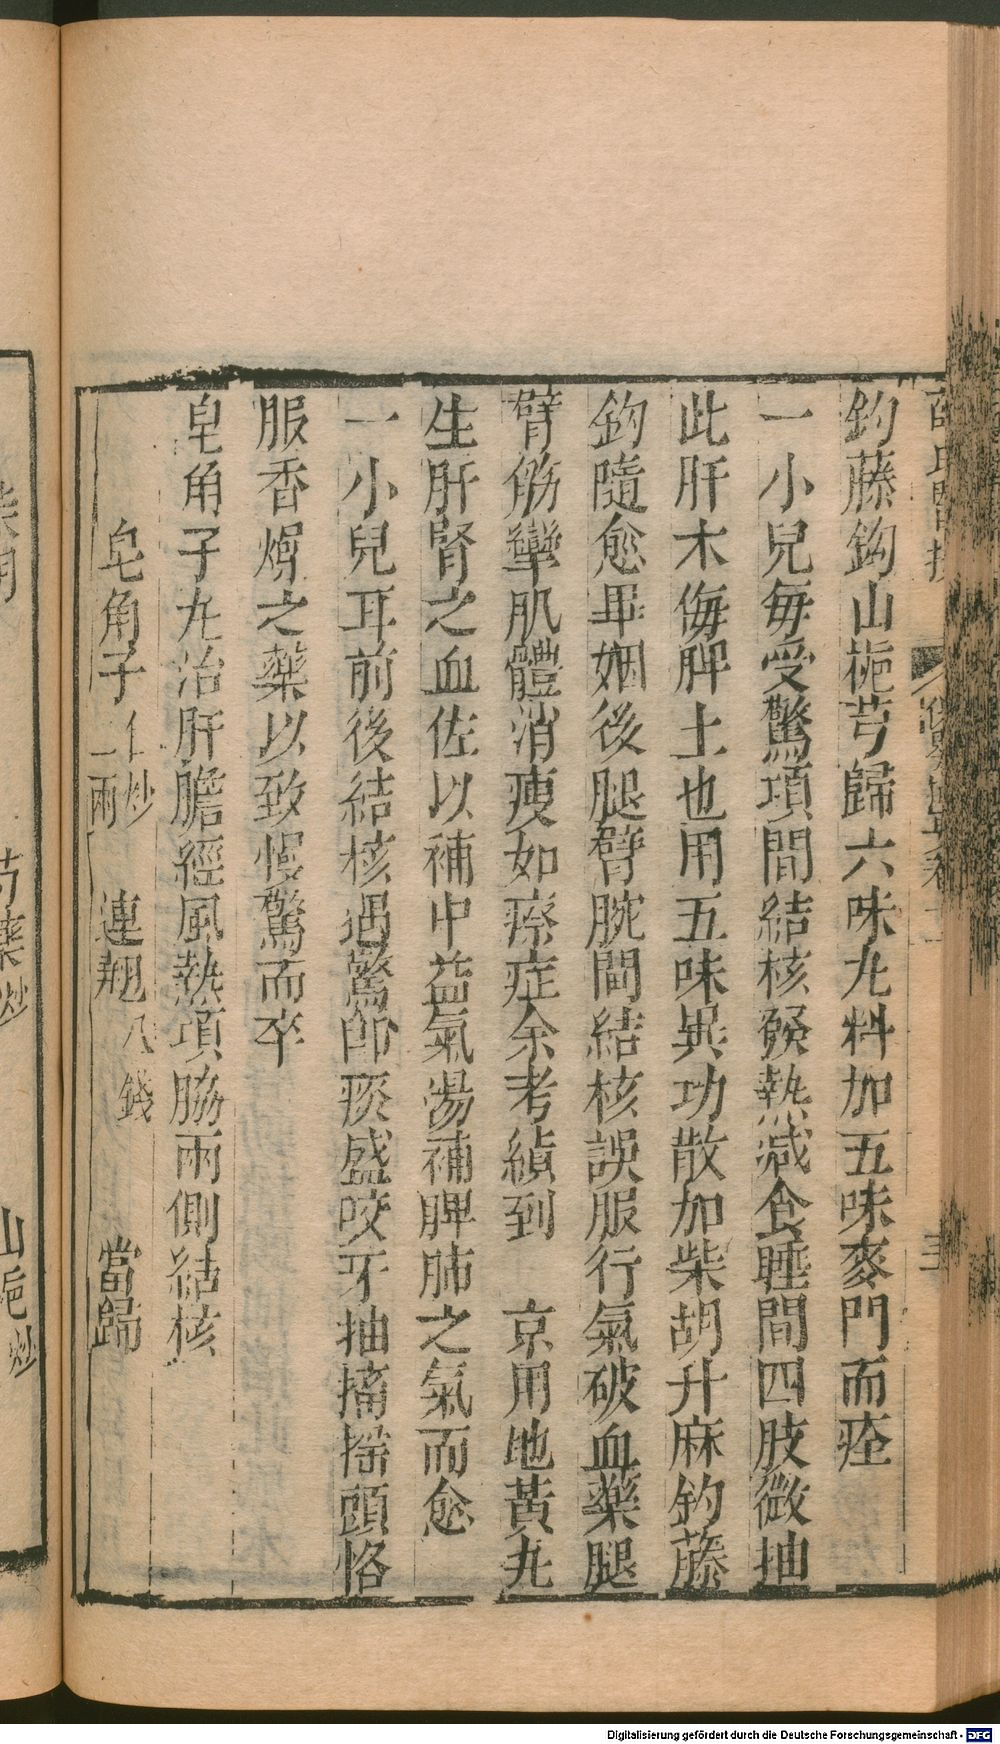 鈞藤鈎山梔芎歸六味九料加五味麥門而痊
一小兒每受驚項間結核發熱減食睡間四肢微抽
此肝木侮脾土也用五味異功散加柴胡升麻釣藤
鈎隨愈畢姻後腿臂腕間結核誤服行氣破血藥腿
臂筋攣肌體消瘦如瘵症余考績到　京用地黃九
生肝腎之血佐以補中益氣湯補脾肺之氣而愈
一小兒耳前後結核遇驚卽痰盛咬牙抽搐搖頭恪
服香燥之藥以致慢驚而卒
皂角子九治肝膽經風熱項脇兩側結核
皂角子仁炒一兩　連翹八錢　當歸
柴胡　芍藥炒　山梔炒
Digitalisierung gefördert durch die Deutsche Forschungsgemeinschaft - DFG